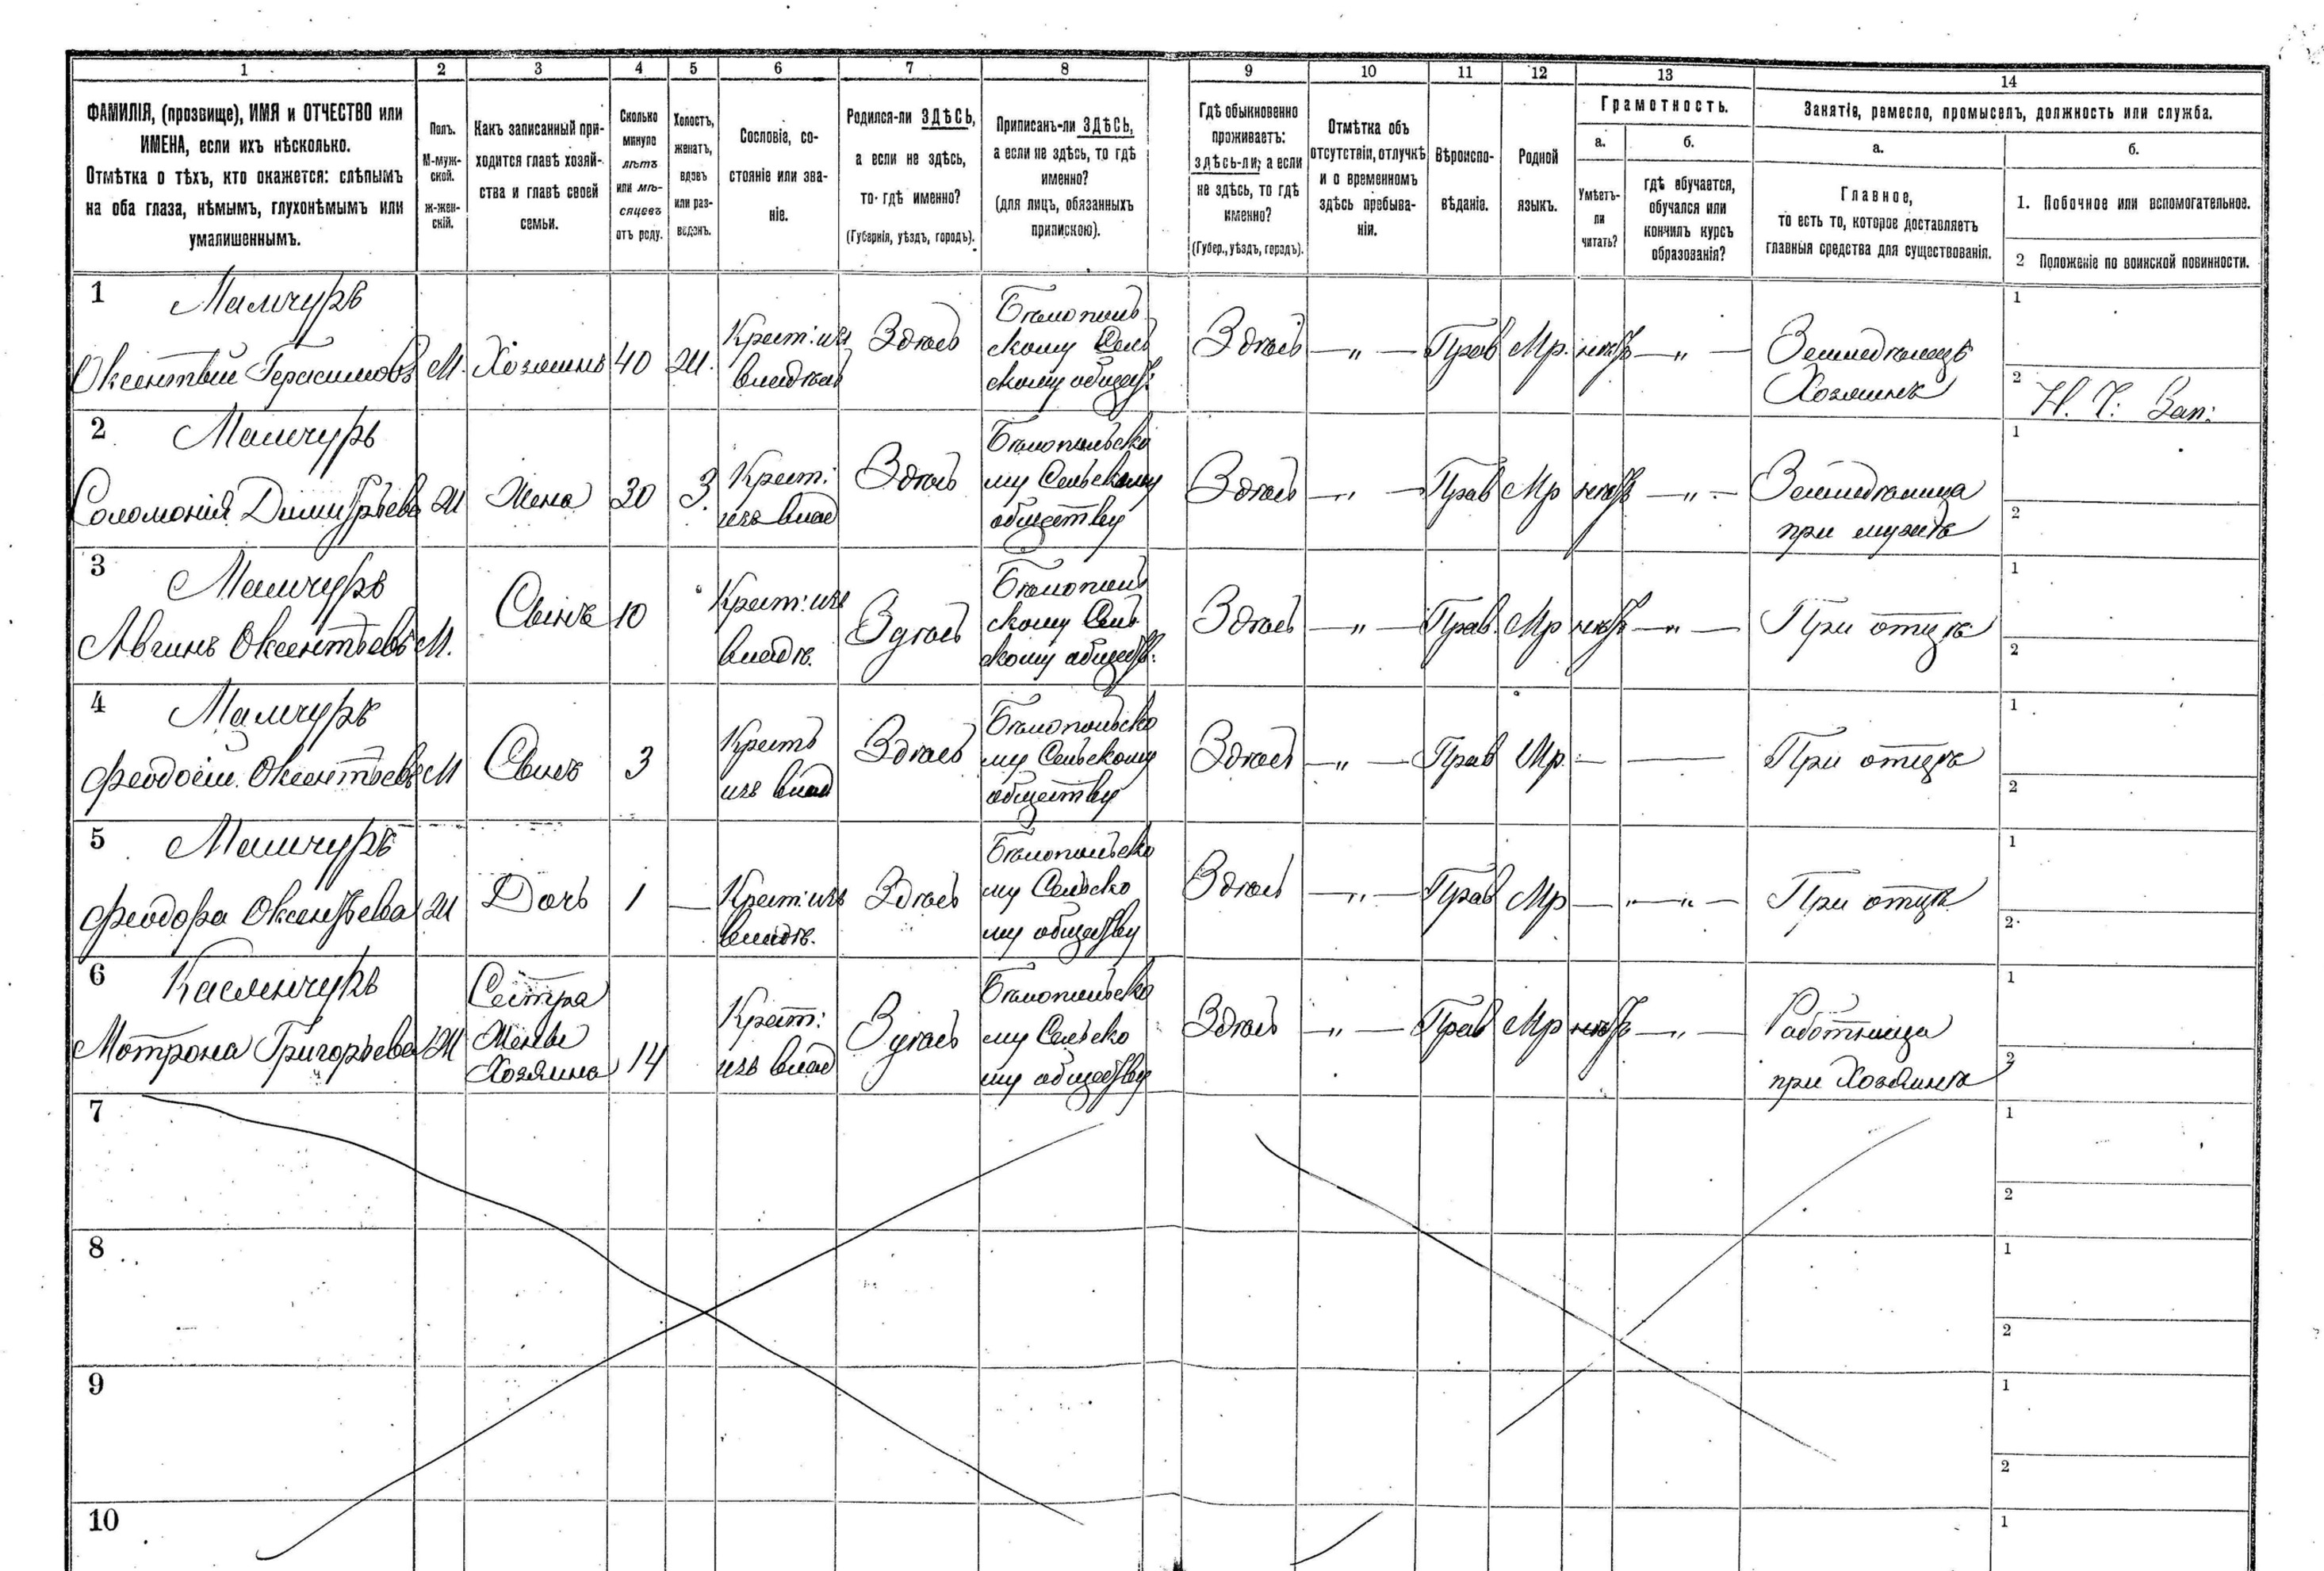 1 2 3 4 5 6 7 8 9 10 11 12 13 14
ФАМИЛІЯ, (прозвище), ИМЯ и ОТЧЕСТВО или
ИМЕНА, если ихъ нѣсколько.
Отмѣтка о тѣхъ, кто окажется: слѣпымъ
на оба глаза, нѣмымъ, глухонѣмымъ или
умалишеннымъ.
Полъ.
М-муж-
ской.
ж-жен-
скій.
Какъ записанный при-
ходится главѣ хозяй-
ства и главѣ своей
семьи.
Сколько
минуло
лѣтъ
или мѣ-
сяцевъ
отъ роду.
Холостъ,
женатъ,
вдовъ
или раз-
веденъ.
Сословіе, со-
стояніе или зва-
ніе.
Родился-ли ЗДѢСЬ,
а если не здѣсь,
то-гдѣ именно?
(Губернія, уѣздъ, городъ).
Приписанъ-ли ЗДѢСЬ,
а если не здѣсь, то гдѣ
именно?
(для лицъ, обязанныхъ
припискою).
Гдѣ обыкновенно
проживаетъ:
здѣсь-ли; а если
не здѣсь, то гдѣ
именно?
(Губер., уѣздъ, городъ).
Отмѣтка объ
отсутствіи, отлучкѣ
и о временномъ
здѣсь пребыва-
ніи.
Вѣроиспо-
вѣданіе.
Родной
языкъ.
Грамотность.
а.
Умѣетъ-
ли
читать?
б.
гдѣ обучается,
обучался или
кончилъ курсъ
образованія?
Занятіе, ремесло, промыселъ, должность или служба.
а.
Главное,
то есть то, которое доставляетъ
главныя средства для существованія.
б.
1. Побочное или вспомогательное.
2 Положеніе по воинской повинности.
1
Мамчуръ
Оксентьій Герасимовъ
М.
Хозяинъ
40
Ж.
Крест: изъ
владѣл
Здѣсь
Бѣлополь
скому Сель
скому общест:
Здѣсь
— „ —
Прав
Мр.
нетъ
— „ —
Земледѣлецъ
Хозяинъ
1
2
Н. Ч. Зап:
2
Мамчуръ
Соломонія Димитрьева
Ж
Жена
30
З.
Крест:
изъ влад
Здѣсь
Бѣлопольско
му Сельскому
обществу
Здѣсь
— „ —
Прав
Мр
нетъ
— „ —
Земледѣлица
при мужѣ
1
2
3
Мамчуръ
Авгинъ Оксентьевъ
М.
Сынъ
10
Крест: изъ
владѣ.
Здѣсь
Бѣлополь
скому Сель
скому общест:
Здѣсь
— „ —
Прав.
Мр
нетъ
— „ —
При отцѣ
1
2
4
Мамчуръ
Феодосій Оксентьевъ
М
Сынъ
3
Крестъ
изъ влад
Здѣсь
Бѣлопольско
му Сельскому
обществу
Здѣсь
— „ —
Прав
Мр.
—
—
При отцѣ
1
2
5
Мамчуръ
Феодора Оксентьева
Ж
Дочь
1
—
Крест: изъ
владѣ.
Здѣсь
Бѣлопольско
му Сельско
му обществу
Здѣсь
— „ —
Прав
Мр
— „ — „ —
При отцѣ
1
2
6
Касменчукъ
Мотрона Григорьева
Ж
Сестра
Жены
Хозяина
14
Крест:
изъ влад
Здѣсь
Бѣлопольско
му Сельско
му обществу
Здѣсь
„ —
Прав
Мр
нетъ
— „ —
Работница
при Хозяинѣ
1
2
7
1
2
8
1
2
9
1
2
10
1